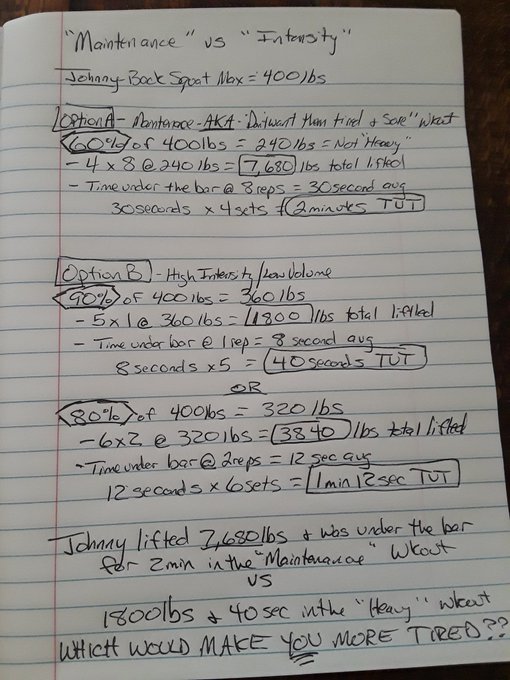 "Maintenance" vs "Intensity"
Johnny Back Squat Max = 400lbs
Option A - Maintenance - AKA - "Don't want them tired & sore" Wkout
60% of 400lbs = 240lbs = Not "Heavy"
- 4 x 8 @ 240lbs = 7,680 lbs total lifted
- Time under the bar @ 8 reps = 30 second avg
30 seconds x 4 sets = 2 minutes TUT
Option B - High Intensity / Low Volume
90% of 400lbs = 360lbs
- 5x1 @ 360lbs = 1800 lbs total lifted
- Time under bar @ 1 rep = 8 second avg
8 seconds x 5 = 40 seconds TUT
OR
80% of 400lbs = 320lbs
- 6x2 @ 320lbs = 3840 lbs total lifted
- Time under bar @ 2 reps = 12 sec avg
12 seconds x 6 sets = 1 min 12 sec TUT
Johnny lifted 7,680lbs & was under the bar
for 2 min in the "Maintenance" Wkout
vs
1800lbs & 40 sec in the "Heavy" wkout
WHICH WOULD MAKE YOU MORE TIRED??